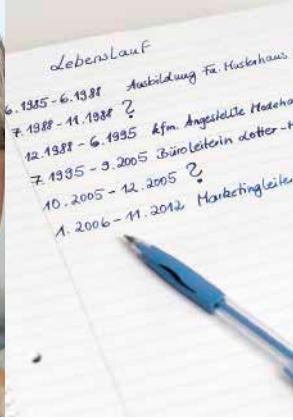 Lebenslauf
6.1985 - 6.1988 Ausbildung Fa. Musterhaus
7.1988 - 11.1988 ?
12.1988 - 6.1995 kfm. Angestellte Modeha
7.1995 - 9.2005 Büroleiterin Lotter-
10.2005 - 12.2005 ?
1.2006 - 11.2012 Marketingleiter